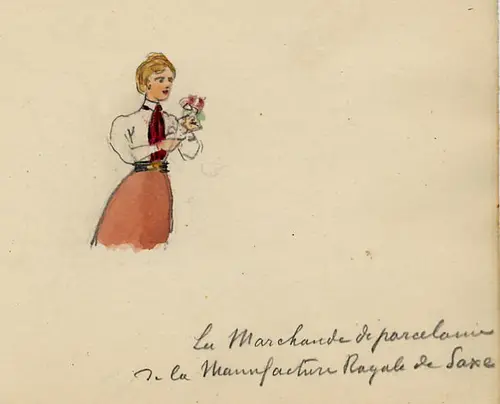 La Marchande de porcelaine
de la Manufacture Royale de Saxe